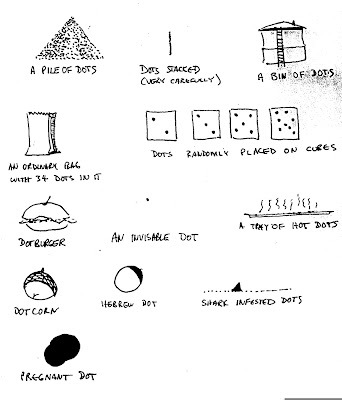 A PILE OF DOTS
DOTS STACKED
(VERY CAREFULLY)
A BIN OF DOTS
AN ORDINARY BAG
WITH 34 DOTS IN IT
DOTS RANDOMLY PLACED ON CUBES
DOTBURGER
AN INVISABLE DOT
A TRAY OF HOT DOTS
DOTCORN
HEBREW DOT
SHARK INFESTED DOTS
PREGNANT DOT